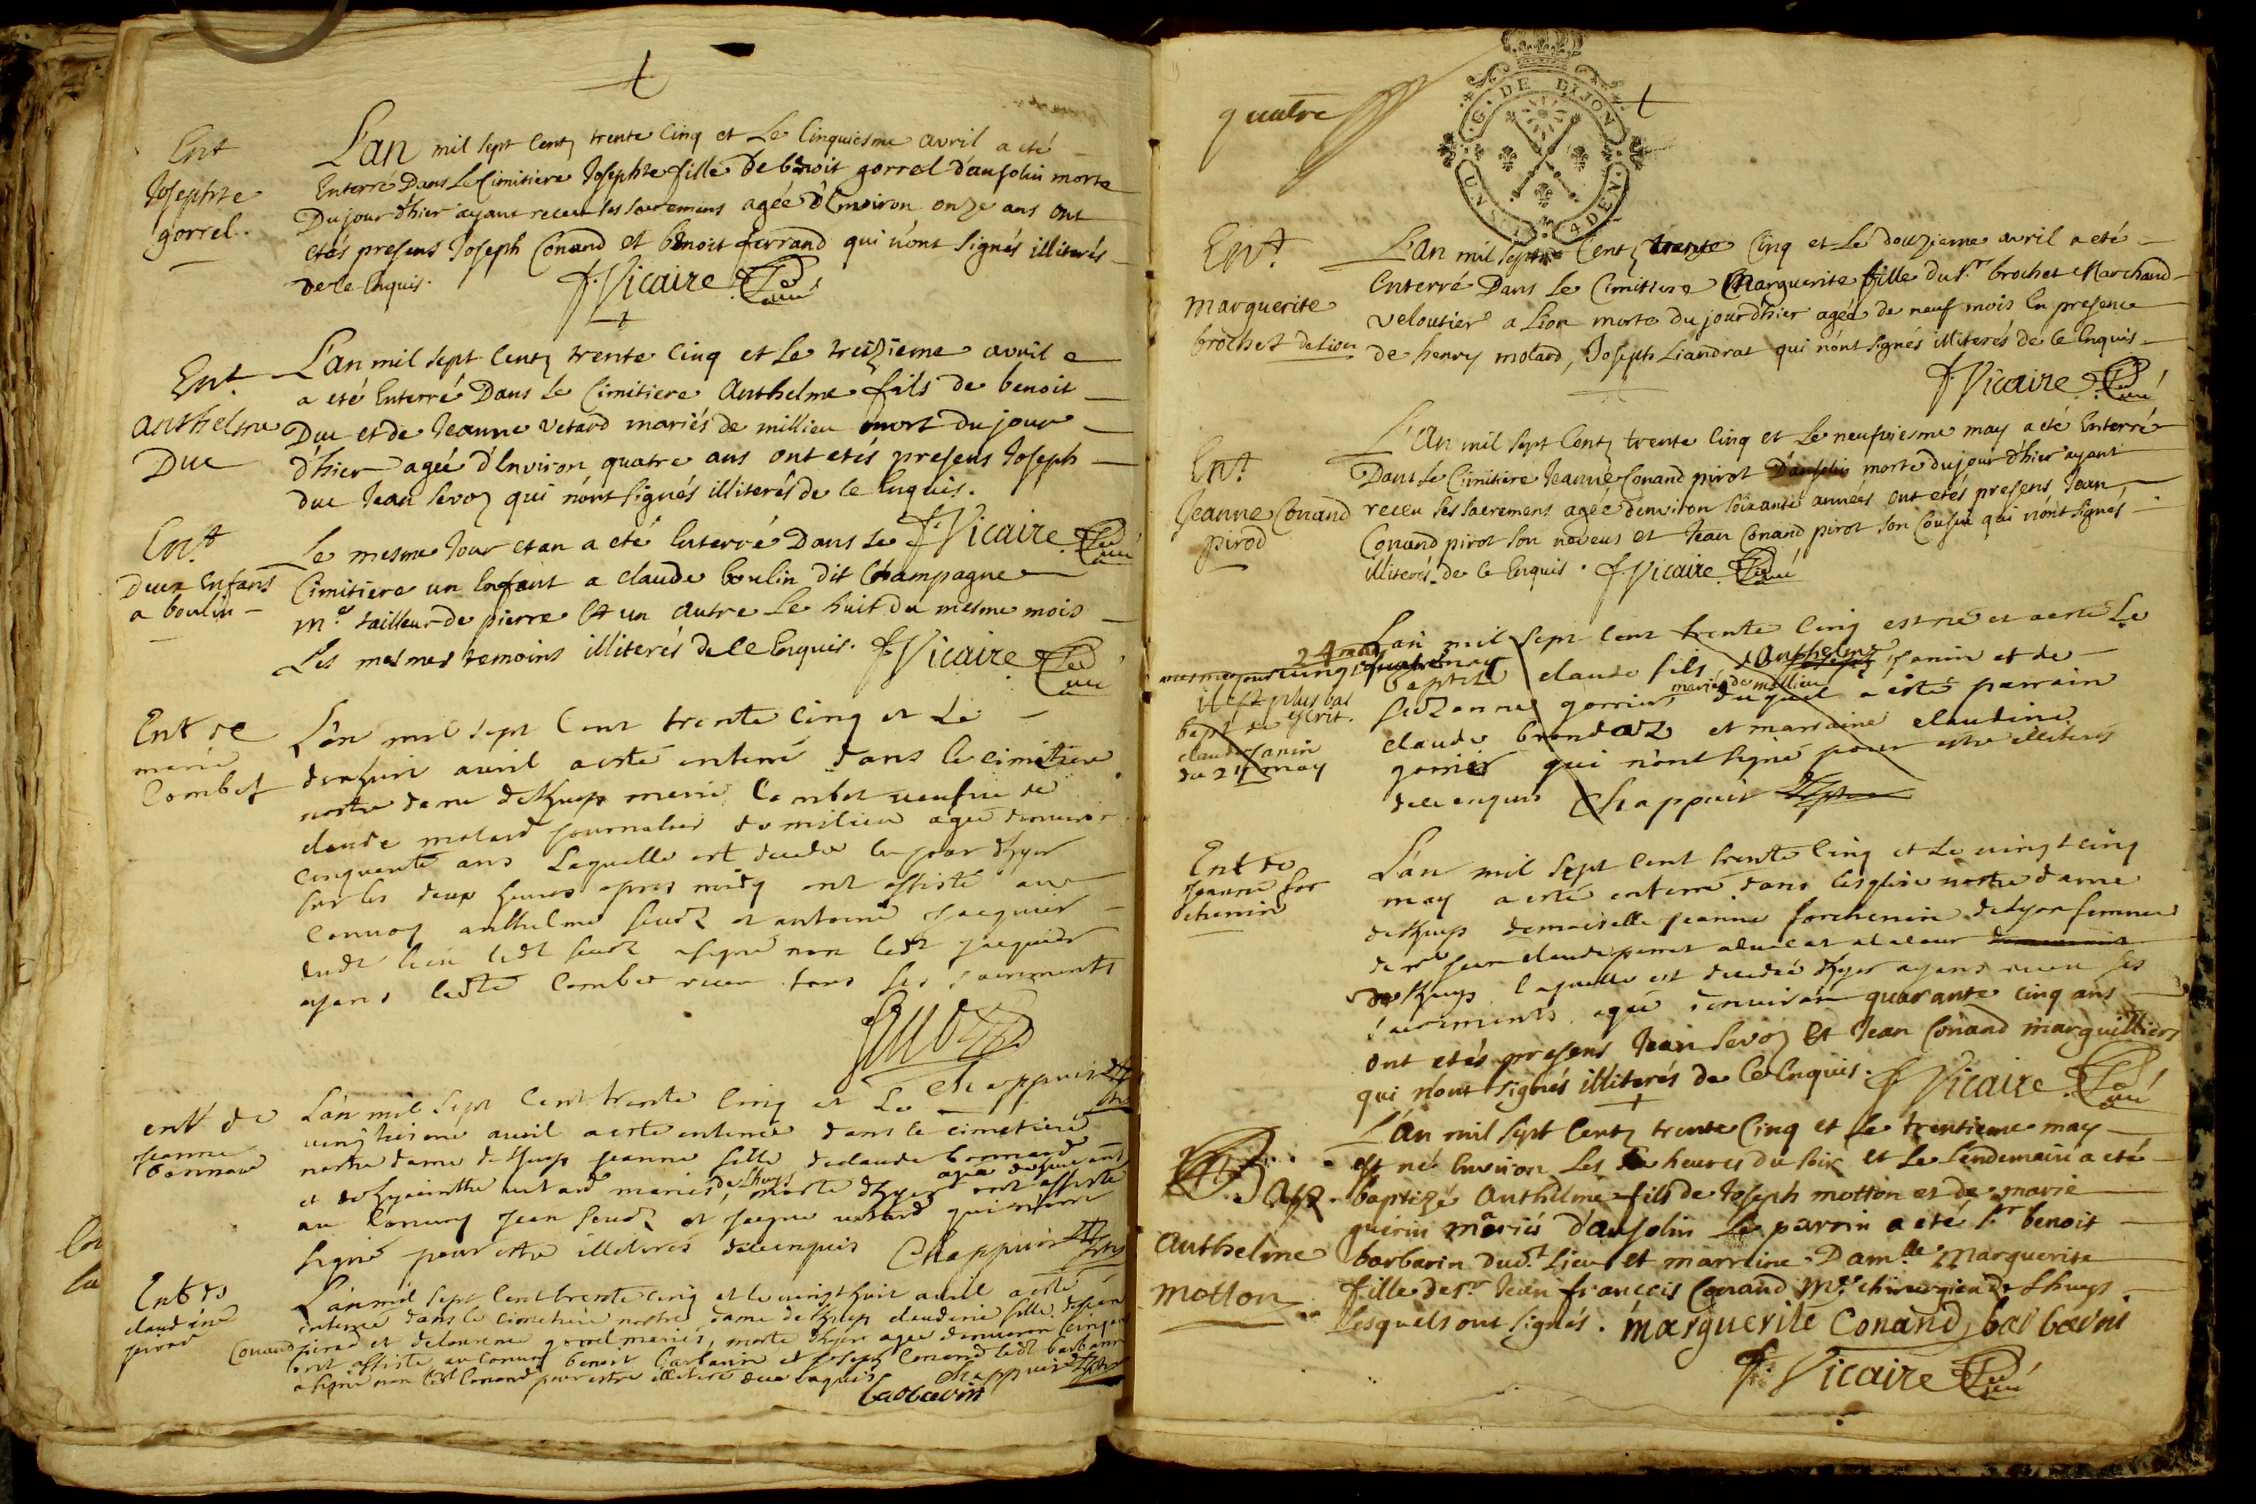 Ent
Josephte
gorrel.
L'an mil sept Centz trente Cinq et Le Cinquiesme avril a eté
Enterré Dans Le Cimitiere Josephte fille de benoit gorrel d'ansolin morte
Du jour d'hier ayant receu ses sacremens agée d'Environ onze ans ont
etés presens Joseph Conand et benoit ferrand qui n'ont signés illiterés
de ce Enquis. f. Vicaire Curé
Ent
anthelme
Duc
L'an mil sept Centz trente Cinq et Le treizieme avril
a eté Enterré Dans Le Cimitiere Anthelme fils de benoit
Duc et de Jeanne vetard mariés de millieu mort du jour
d'hier agée d'Environ quatre ans ont etés presens Joseph
duc Jean Sevoz qui n'ont signés illiterés de ce Enquis.
f. Vicaire Curé
Ent
Deux Enfans
a boulin
Le mesme Jour et an a eté Enterré Dans Le
Cimitiere un Enfant a claude boulin dit Champagne
me. tailleur de pierre et un autre Le huit du mesme mois
Les mesmes temoins illiterés de ce Enquis. f. Vicaire Curé
Ent de
marie
Combet
L'an mil sept Cent trente Cinq et Le
dixhuit avril a esté enterré dans le cimitiere
nostre dame de Lhuys marie Combet veufve de
claude molard journalier de milieu agée d'environ
cinquante ans Laquelle est decedée le jour d'hyer
sur les deux heures apres midy ont assisté au
Convoy anthelme et antoine Jacquier
dudt lieu ledt a signé non ledt Jacquier
ayant ladte Combet receu tous ses sacrements
Chappuis
entt de
Jeanne
bonnard
L'an mil sept Cent trente Cinq et Le
vingtiesme avril a esté enterrée dans le cimetiere
nostre dame de Lhuys Jeanne fille de claude bonnard
et de hyacinthe vetard mariés de Lhuys, morte d'hyer ont assisté
au Convoy Jean et Jacque vetard qui n'ont
signé pour estre illiterés de ce enquis Chappuis
Ent de
claudine
pirod
L'an mil sept Cent trente cinq et le vingt huit avril a esté
enterrée dans le cimetiere nostre dame de Lhuys claudine fille de jean
Conand pirod et de gorrel mariés, morte d'hyer agée d'environ
ont assisté au Convoy benoit barbarin et Joseph Conand ledt barbarin
a signé non ledt Conand pour estre illiteré de ce enquis Chappuis
barbarin
quatre
G. DE DIJON
UN S. 4 DEN.
Ent
marguerite
brochet de Lion
L'an mil sept Centz trente Cinq et Le douzieme avril a eté
Enterré Dans Le Cimitiere Marguerite fille du Sr brochet Marchand
veloutier a Lion morte du jour d'hier agée de neuf mois En presence
de henry molard, Joseph Liandrat qui n'ont signés illiterés de ce Enquis
f. Vicaire Curé
Ent
Jeanne Conand
pirod
L'An mil sept Centz trente Cinq et Le neufviesme may a eté Enterré
Dans Le Cimitiere Jeanne Conand pirot D'ansolin morte du jour d'hier ayant
receu ses sacremens agée d'environ soixante années ont etés presens Jean
Conand pirot son neveus et Jean Conand pirot son Cousin qui n'ont signés
illiterés de ce Enquis. f. Vicaire Curé
24 may
il est plus bas
escrit.
bapt de
claude Janin
du 24 may
L'an mil sept Cent trente Cinq est né et a esté Le
baptisé claude fils d'anthelme Janin et de
suzanne gorrier mariés de millieu duquel a esté parrain
claude brondaz et marraine claudine
gorrier qui n'ont signé pour estre illiterés
de ce enquis Chappuis
Ent de
Jeanne for
chenin
L'an mil sept Cent trente Cinq et Le vingt cinq
may a esté enterré dans l'esglise nostre dame
de Lhuys demoiselle Jeanne forchenin de Lyon femme
de sr claude perret advocat a la cour
de Lhuys laquelle est decedée d'hyer ayant receu ses
sacrements agée d'environ quarante cinq ans
ont etés presens Jean Sevoz et Jean Conand marguilliers
qui n'ont signés illiterés de Ce Enquis. f. Vicaire Curé
Bap
Anthelme
Motton
L'an mil sept Centz trente Cinq et Le trentieme may
est né Environ Les heures du soir et Le Lendemain a eté
baptizé Anthelme fils de Joseph motton et de marie
guerin mariés d'ansolin Le parrin a eté sr benoit
barbarin dudt. Lieu et marraine Damlle Marguerite
fille de sr Jean françois Conand Me chirurgien de Lhuys
Lesquels ont signés. marguerite Conand barbarin
f. Vicaire Curé